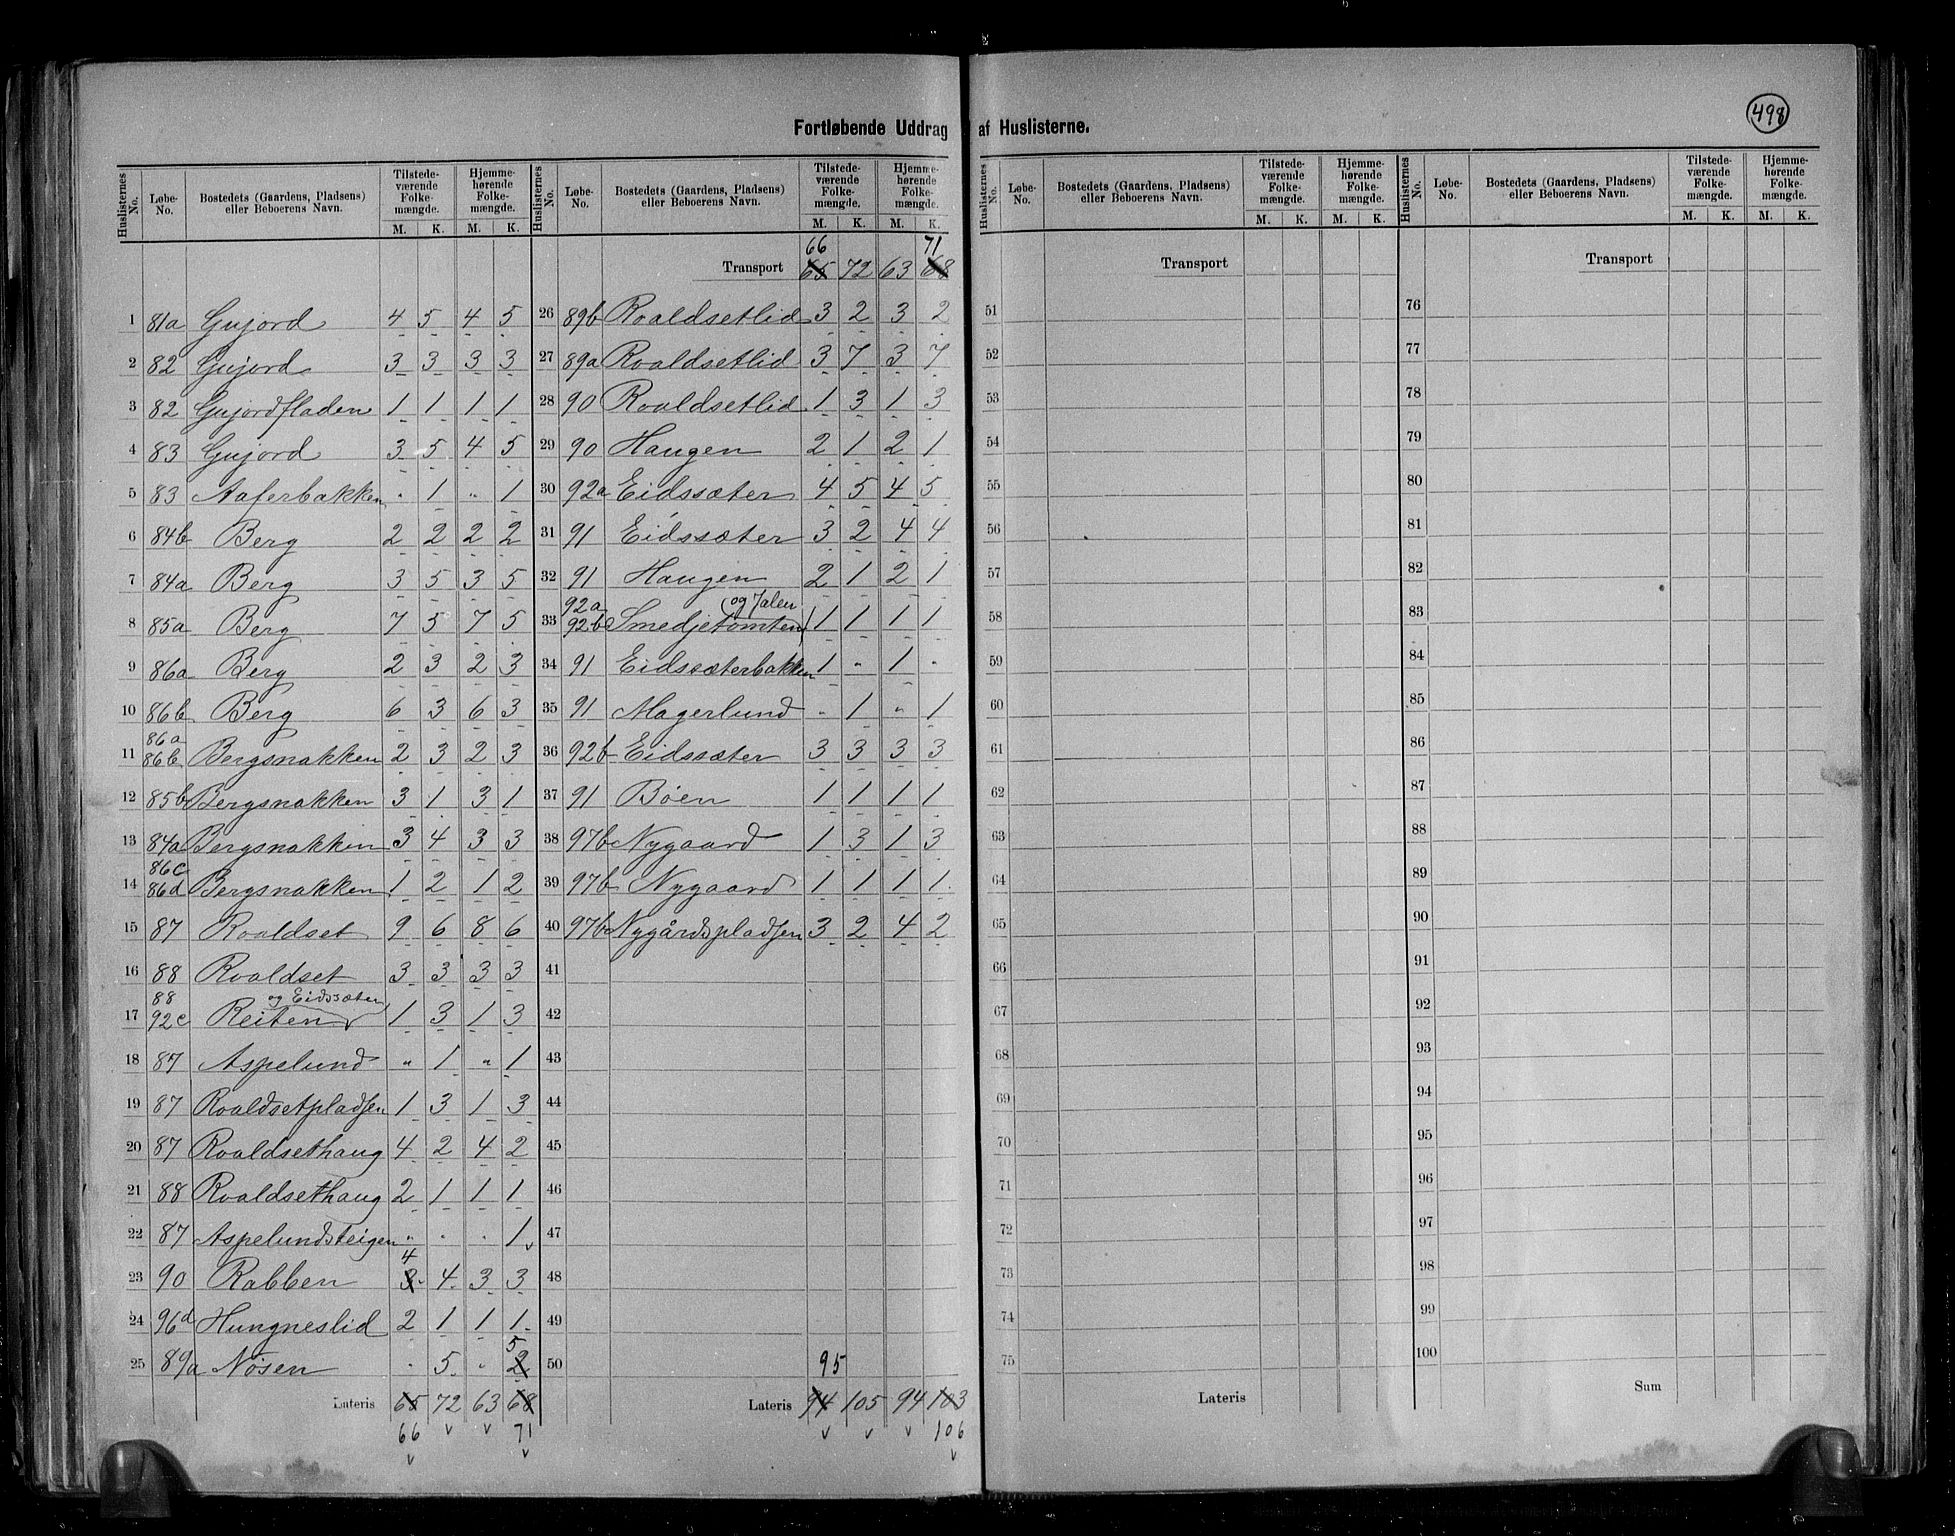 498
Fortløbende Uddrag af Huslisterne.
Huslisternes No. | Løbe-No. | Bostedets (Gaardens, Pladsens) eller Beboerens Navn. | Tilstedeværende Folkemængde. M. K. | Hjemmehørende Folkemængde. M. K.
1 81a Gujord 4 5 4 5
2 82 Gujord 3 3 3 3
3 82 Gujordfladen 1 1 1 1
4 83 Gujord 3 5 4 5
5 83 Aaferbakken " 1 " 1
6 84b Berg 2 2 2 2
7 84a Berg 3 5 3 5
8 85a Berg 7 5 7 5
9 86a Berg 2 3 2 3
10 86b Berg 6 3 6 3
11 86a 86b Bergsnakken 2 3 2 3
12 85b Bergsnakken 3 1 3 1
13 84a Bergsnakken 3 4 3 3
14 86c 86d Bergsnakken 1 2 1 2
15 87 Roaldset 9 6 8 6
16 88 Roaldset 3 3 3 3
17 88 92c Reiten og Eidssæter 1 3 1 3
18 87 Aspelund " 1 " 1
19 87 Roaldsetpladsen 1 3 1 3
20 87 Roaldsethaug 4 2 4 2
21 88 Roaldsethaug 2 1 1 1
22 87 Aspelundsteigen " " " 1
23 90 Rabben 3 4 4 3 3
24 96d Hungneslid 2 1 1 1
25 89a Nøsen " 5 " 2 5
Lateris 65 72 63 68
66 71
Huslisternes No. | Løbe-No. | Bostedets (Gaardens, Pladsens) eller Beboerens Navn. | Tilstedeværende Folkemængde. M. K. | Hjemmehørende Folkemængde. M. K.
66 71
Transport 65 72 63 68
26 89b Roaldsetlid 3 2 3 2
27 89a Roaldsetlid 3 7 3 7
28 90 Roaldsetlid 1 3 1 3
29 90 Haugen 2 1 2 1
30 92a Eidssæter 4 5 4 5
31 91 Eidssæter 3 2 4 4
32 91 Haugen 2 1 2 1
33 92a 92b Smedjetomten (og Jalen) 1 1 1 1
34 91 Eidssæterbakken 1 " 1 "
35 91 Magerlund " 1 " 1
36 92b Eidssæter 3 3 3 3
37 91 Bøen 1 1 1 1
38 97b Nygaard 1 3 1 3
39 97b Nygaard 1 1 1 1
40 97b Nygårdspladsen 3 2 4 2
41
42
43
44
45
46
47
48
49
50
95
Lateris 94 105 94 103
106
Huslisternes No. | Løbe-No. | Bostedets (Gaardens, Pladsens) eller Beboerens Navn. | Tilstedeværende Folkemængde. M. K. | Hjemmehørende Folkemængde. M. K.
Transport
51
52
53
54
55
56
57
58
59
60
61
62
63
64
65
66
67
68
69
70
71
72
73
74
75
Lateris
Huslisternes No. | Løbe-No. | Bostedets (Gaardens, Pladsens) eller Beboerens Navn. | Tilstedeværende Folkemængde. M. K. | Hjemmehørende Folkemængde. M. K.
Transport
76
77
78
79
80
81
82
83
84
85
86
87
88
89
90
91
92
93
94
95
96
97
98
99
100
Sum